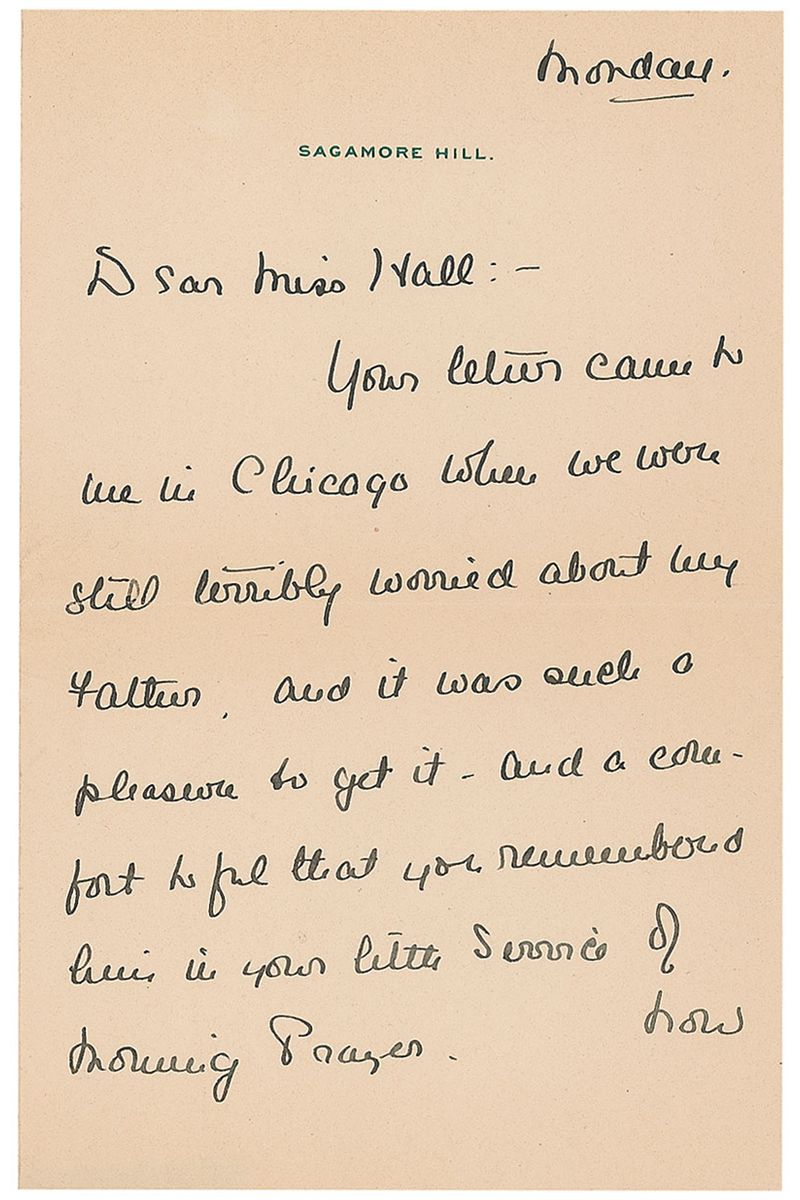 Monday.
SAGAMORE HILL.
Dear Miss Hall : –
Your letter came to
me in Chicago when we were
still terribly worried about my
Father, and it was such a
pleasure to get it – and a com-
fort to feel that you remembered
him in your little Service of
Morning Prayer. Now